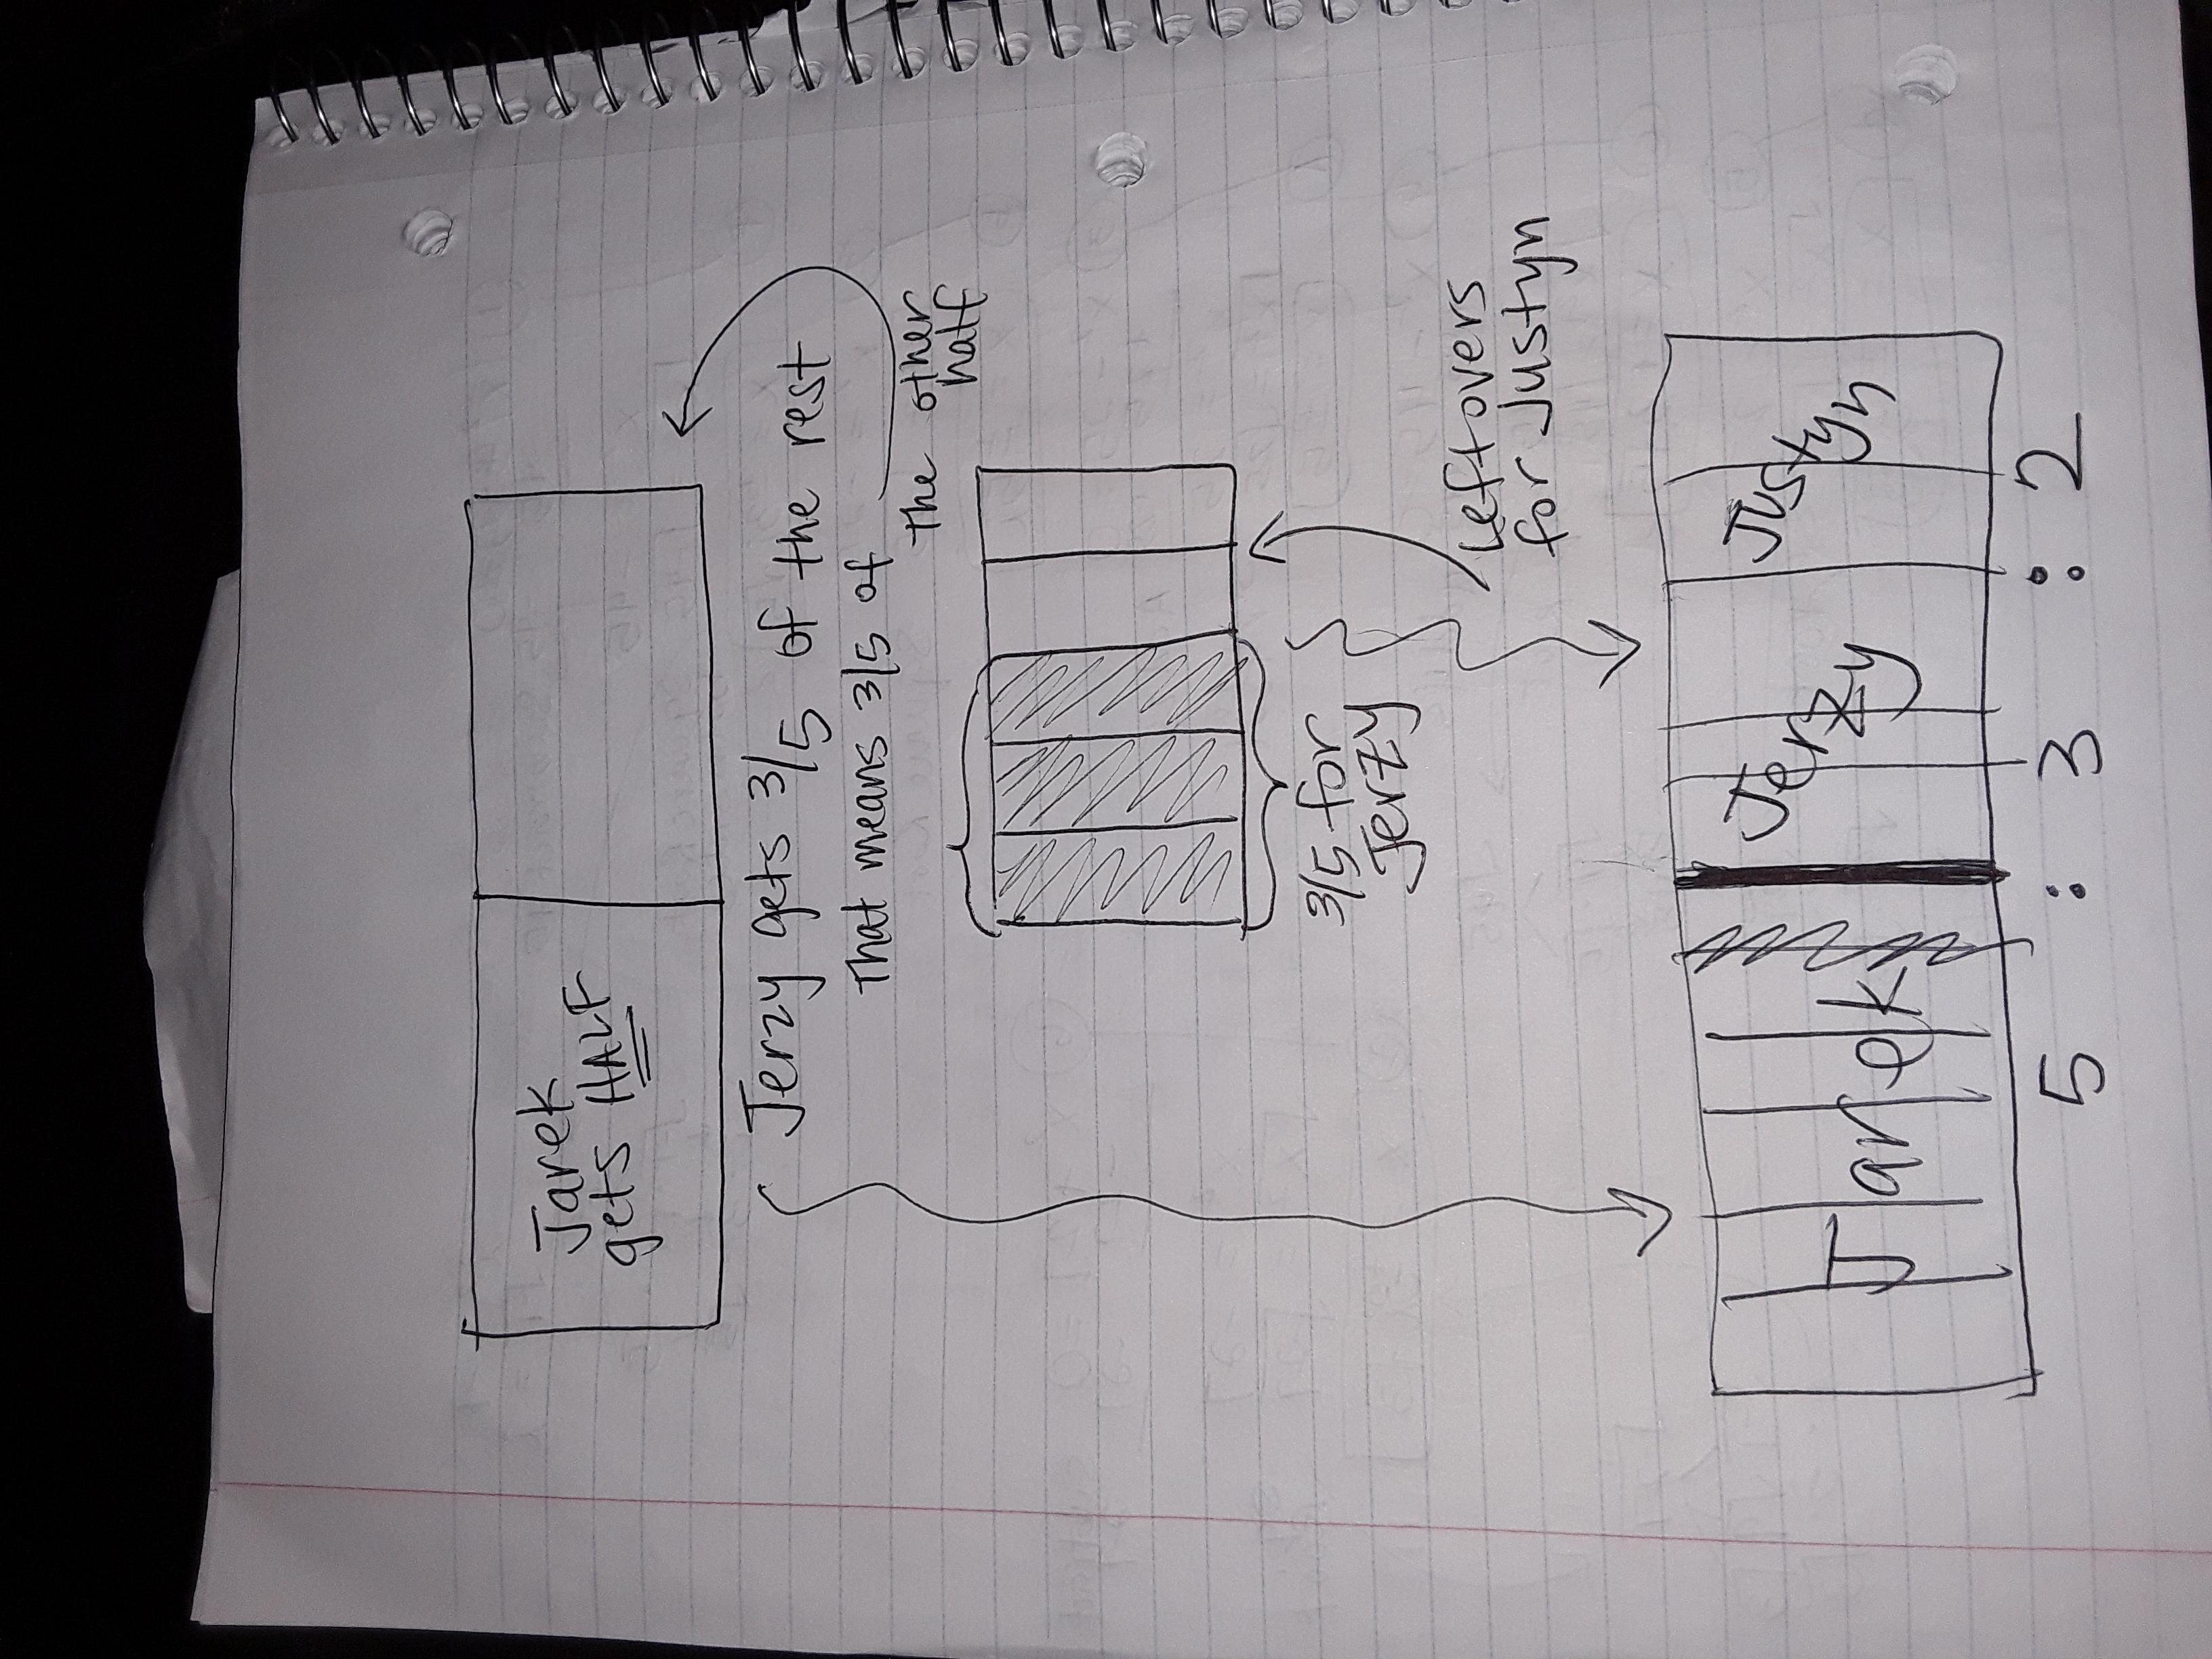 Jarek
gets HALF
Jerzy gets 3/5 of the rest
That means 3/5 of
the other
half
3/5 for
Jerzy
Leftovers
for Justyn
Jarek Jerzy Justyn
5 : 3 : 2